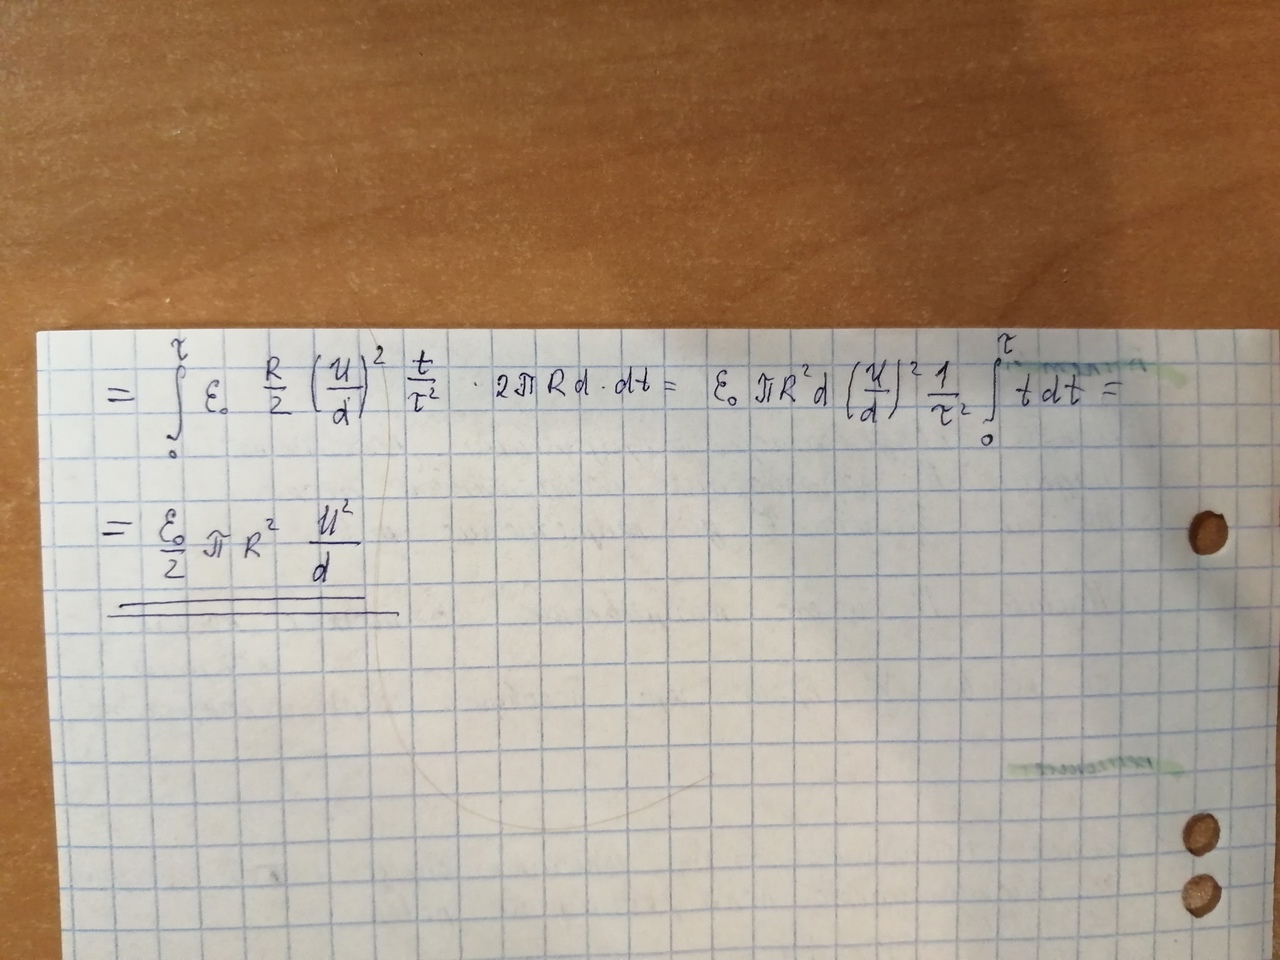 = ∫₀^τ ε₀ R/2 (U/d)² t/τ² · 2πRd · dt = ε₀ πR²d (U/d)² 1/τ² ∫₀^τ t dt =
= ε₀/2 πR² U²/d